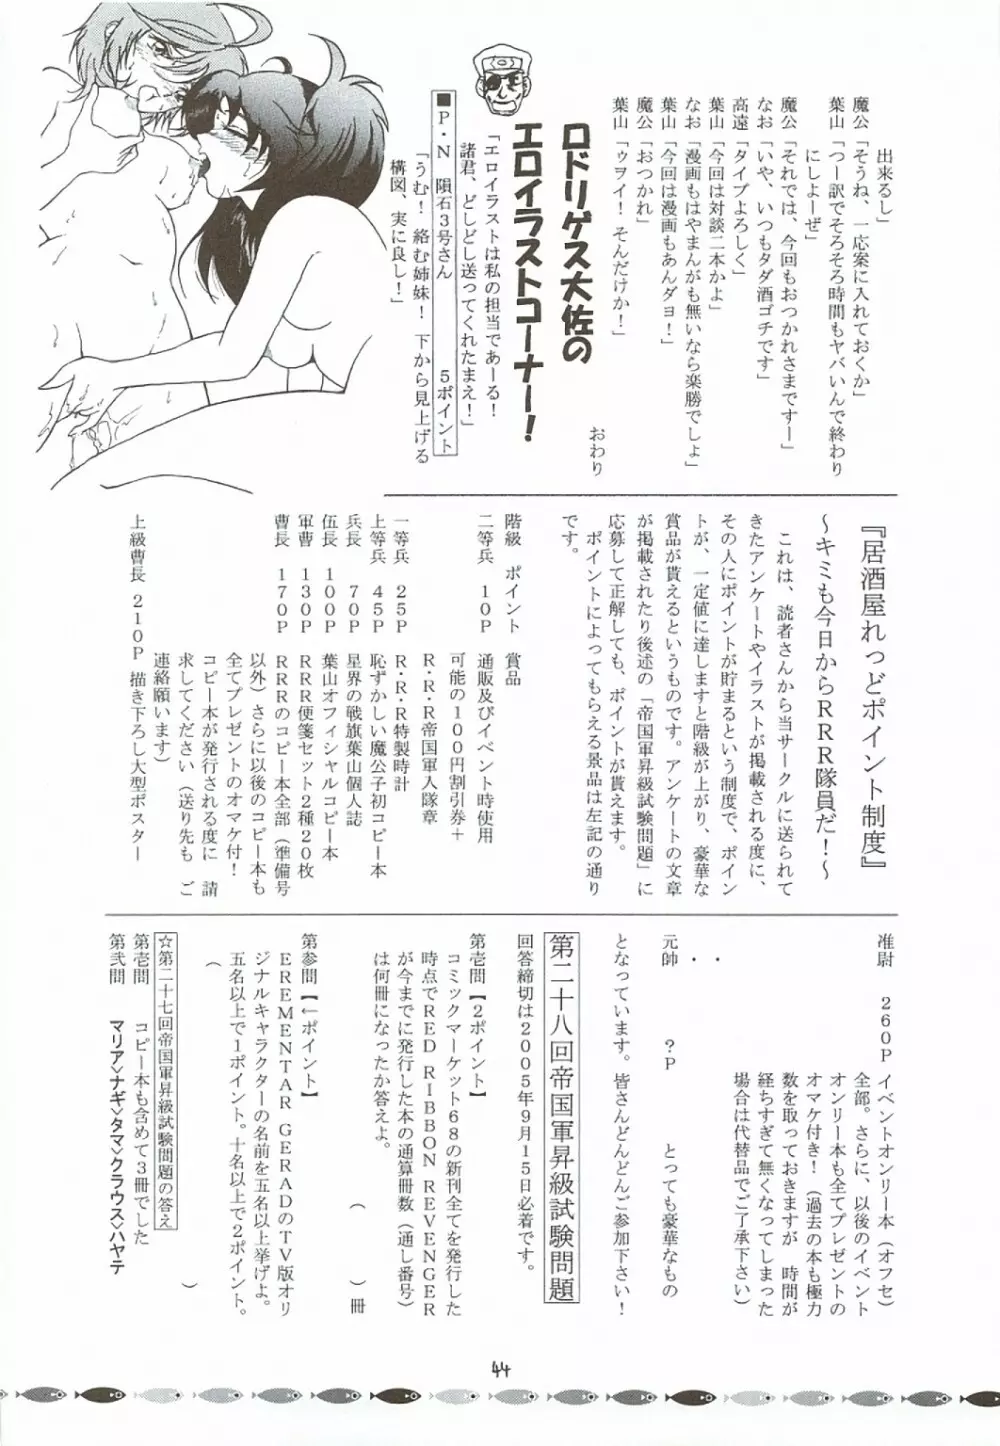 出来るし」
魔公「そうね、一応案に入れておくか」
葉山「つー訳でそろそろ時間もヤバいんで終わり
にしよーぜ」
魔公「それでは、今回もおつかれさまですー」
なお「いや、いつもタダ酒ゴチです」
高遠「タイプよろしく」
葉山「今回は対談二本かよ」
なお「漫画もはやまんがも無いなら楽勝でしょ」
葉山「今回は漫画もあんダヨ！」
魔公「おつかれ」
葉山「ゥヲイ！そんだけか！」
おわり
ロドリゲス大佐の
エロイラストコーナー！
「エロイラストは私の担当であーる！
諸君、どしどし送ってくれたまえ！」
■P・N 隕石３号さん ５ポイント
「うむ！絡む姉妹！下から見上げる
構図、実に良し！」
『居酒屋れっどポイント制度』
～キミも今日からRRR隊員だ！～
これは、読者さんから当サークルに送られて
きたアンケートやイラストが掲載される度に、
その人にポイントが貯まるという制度で、ポイン
トが、一定値に達しますと階級が上がり、豪華な
賞品が貰えるというものです。アンケートの文章
が掲載されたり後述の「帝国軍昇級試験問題」に
応募して正解しても、ポイントが貰えます。
ポイントによってもらえる景品は左記の通り
です。
階級 ポイント 賞品
二等兵 １０P 通販及びイベント時使用
可能の１００円割引券＋
R・R・R帝国軍入隊章
一等兵 ２５P R・R・R特製時計
上等兵 ４５P 恥ずかしい魔公子初コピー本
兵長 ７０P 星界の戦旗葉山個人誌
伍長 １００P 葉山オフィシャルコピー本
軍曹 １３０P RRR便箋セット２種２０枚
曹長 １７０P RRRのコピー本全部（準備号
以外）さらに以後のコピー本も
全てプレゼントのオマケ付！
コピー本が発行される度に 請
求してください（送り先も ご
連絡願います）
上級曹長 ２１０P 描き下ろし大型ポスター
准尉 ２６０P イベントオンリー本（オフセ）
全部。さらに、以後のイベント
オンリー本も全てプレゼントの
オマケ付き！（過去の本も極力
数を取っておきますが 時間が
経ちすぎて無くなってしまった
場合は代替品でご了承下さい）
・
・
元帥 ？P とっても豪華なもの
となっています。皆さんどんどんご参加下さい！
第二十八回帝国軍昇級試験問題
回答締切は２００５年９月１５日必着です。
第壱問【２ポイント】
コミックマーケット６８の新刊全てを発行した
時点でRED RIBBON REVENGER
が今までに発行した本の通算冊数（通し番号）
は何冊になったか答えよ。
（ ）冊
第参問【←ポイント】
EREMENTAR GERADのTV版オリ
ジナルキャラクターの名前を五名以上挙げよ。
五名以上で１ポイント。十名以上で２ポイント。
（ ）
☆第二十七回帝国軍昇級試験問題の答え
第壱問 コピー本も含めて３冊でした
第弐問 マリア＞ナギ＞タマ＞クラウス＞ハヤテ
44